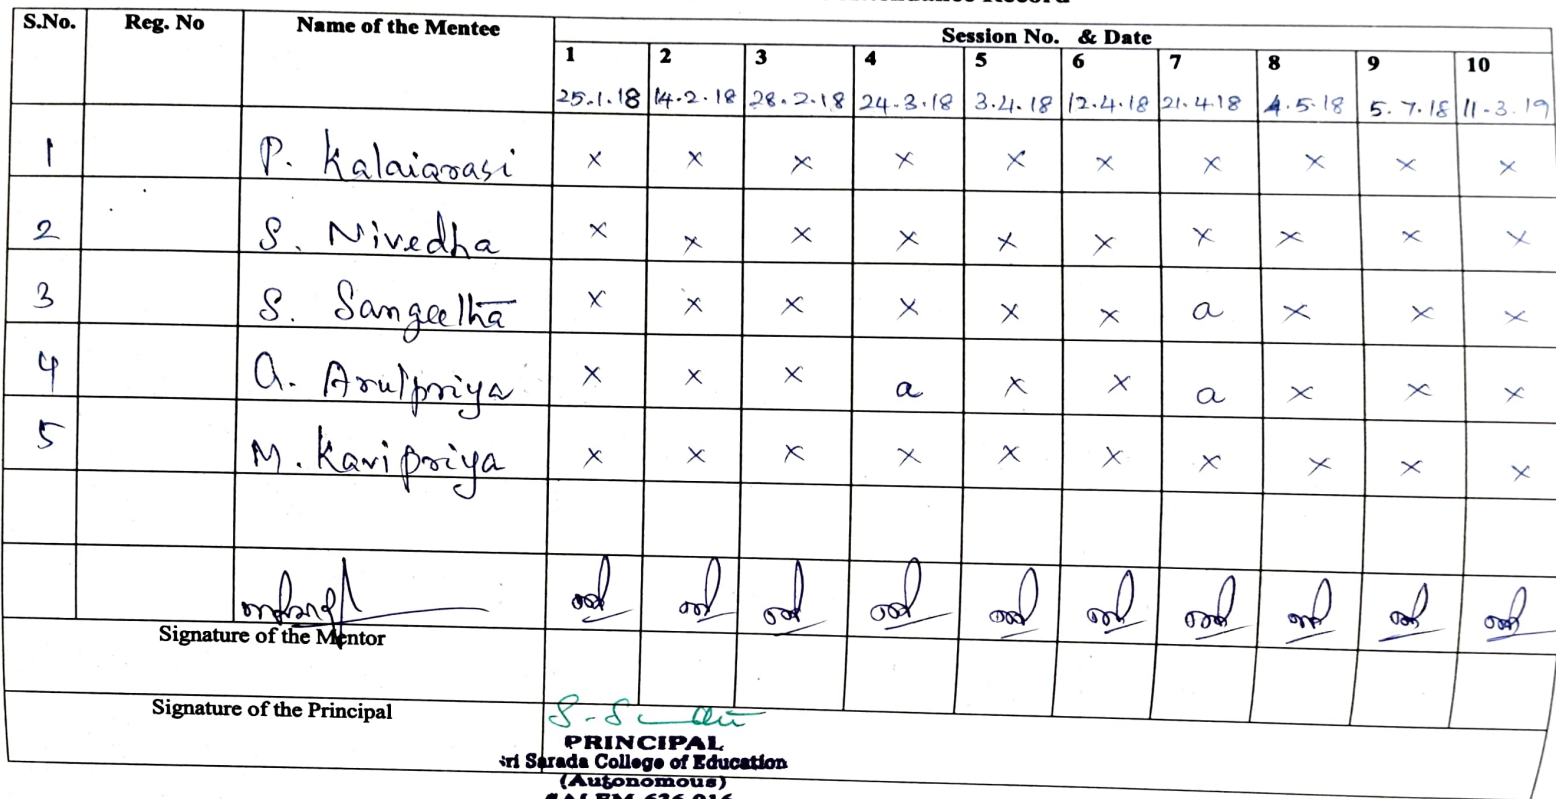 S.No. Reg. No Name of the Mentee Session No. & Date
1 2 3 4 5 6 7 8 9 10
25.1.18 14.2.18 28.2.18 24.3.18 3.4.18 12.4.18 21.4.18 4.5.18 5.7.18 11-3.19
1 P. Kalaiarasi x x x x x x x x x x
2 S. Nivedha x x x x x x x x x x
3 S. Sangeetha x x x x x x a x x x
4 A. Arulpriya x x x a x x a x x x
5 M. Kavipriya x x x x x x x x x x
Signature of the Mentor
Signature of the Principal
PRINCIPAL
Sri Sarada College of Education
(Autonomous)
SALEM-636 016